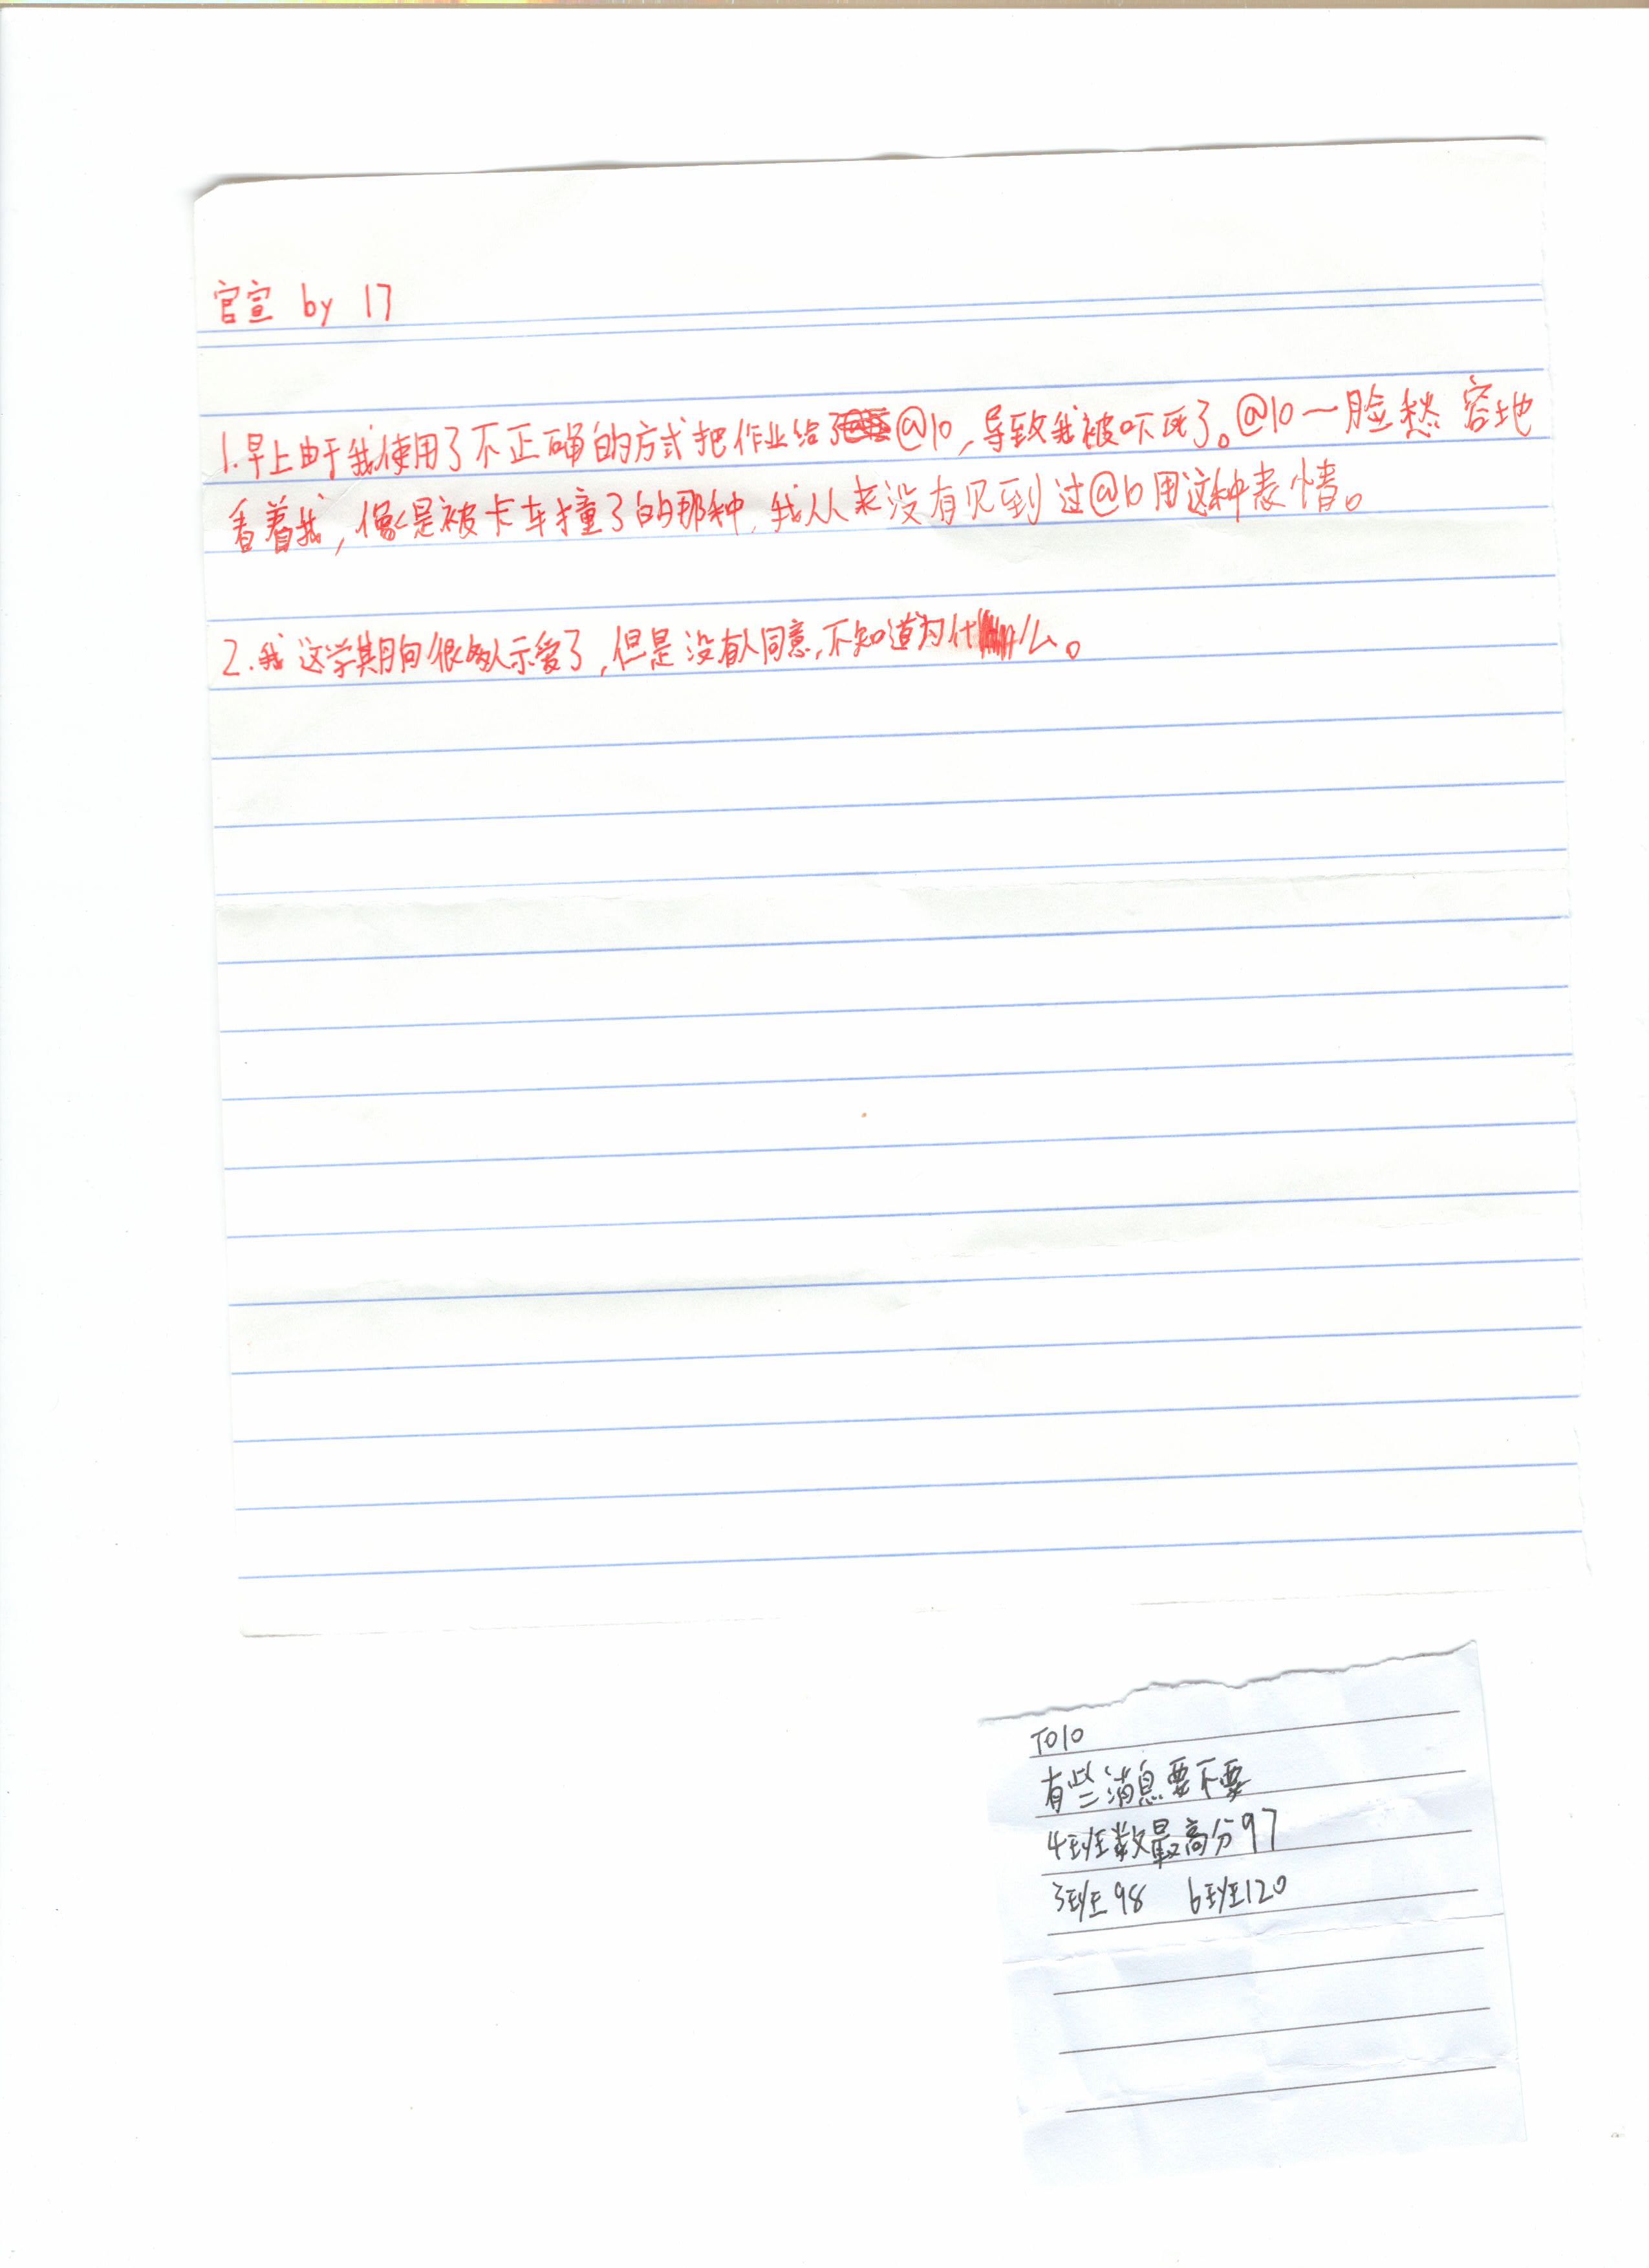 官宣 by 17
1.早上由于我使用了不正确的方式把作业给了@10,导致我被吓死了。@10一脸愁容地
看着我,像是被卡车撞了的那种,我从来没有见到过@10用这种表情。
2.我这学期向很多人示爱了,但是没有人同意,不知道为什么。
TO10
有些消息要不要
4班数最高分97
3班98 6班120